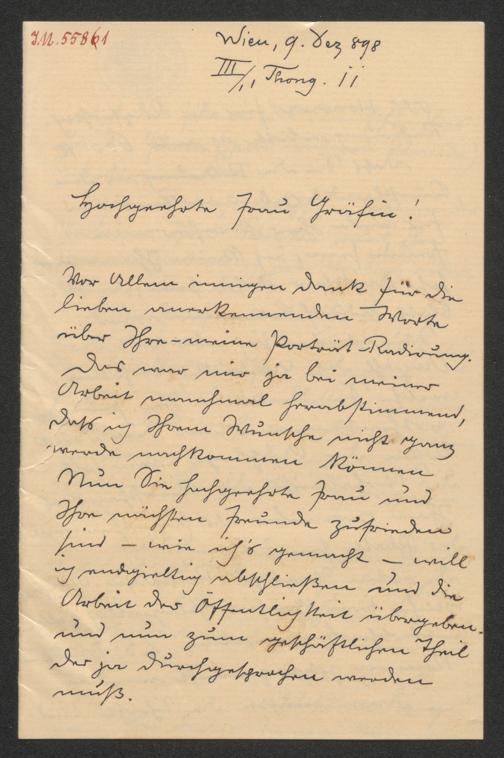 I.N. 55861
Wien, 9. Dez 898
III/1, Thong. 11
Hochgeehrte Frau Gräfin!
Vor Allem innigen Dank für die
lieben anerkennenden Worte
über Ihre-meine Porträt-Radirung.
Das war mir ja bei meiner
Arbeit manchmal herabstimmend,
daß ich Ihrem Wunsche nicht ganz
werde nachkommen können
Nun Sie hochgeehrte Frau und
Ihre nächsten Freunde zufrieden
sind – wie ich's gemacht – will
ich endgieltig abschließen und die
Arbeit der Öffentlichkeit übergeben.
und nun zum geschäftlichen Theil
der ja durchgesprochen werden
muß.